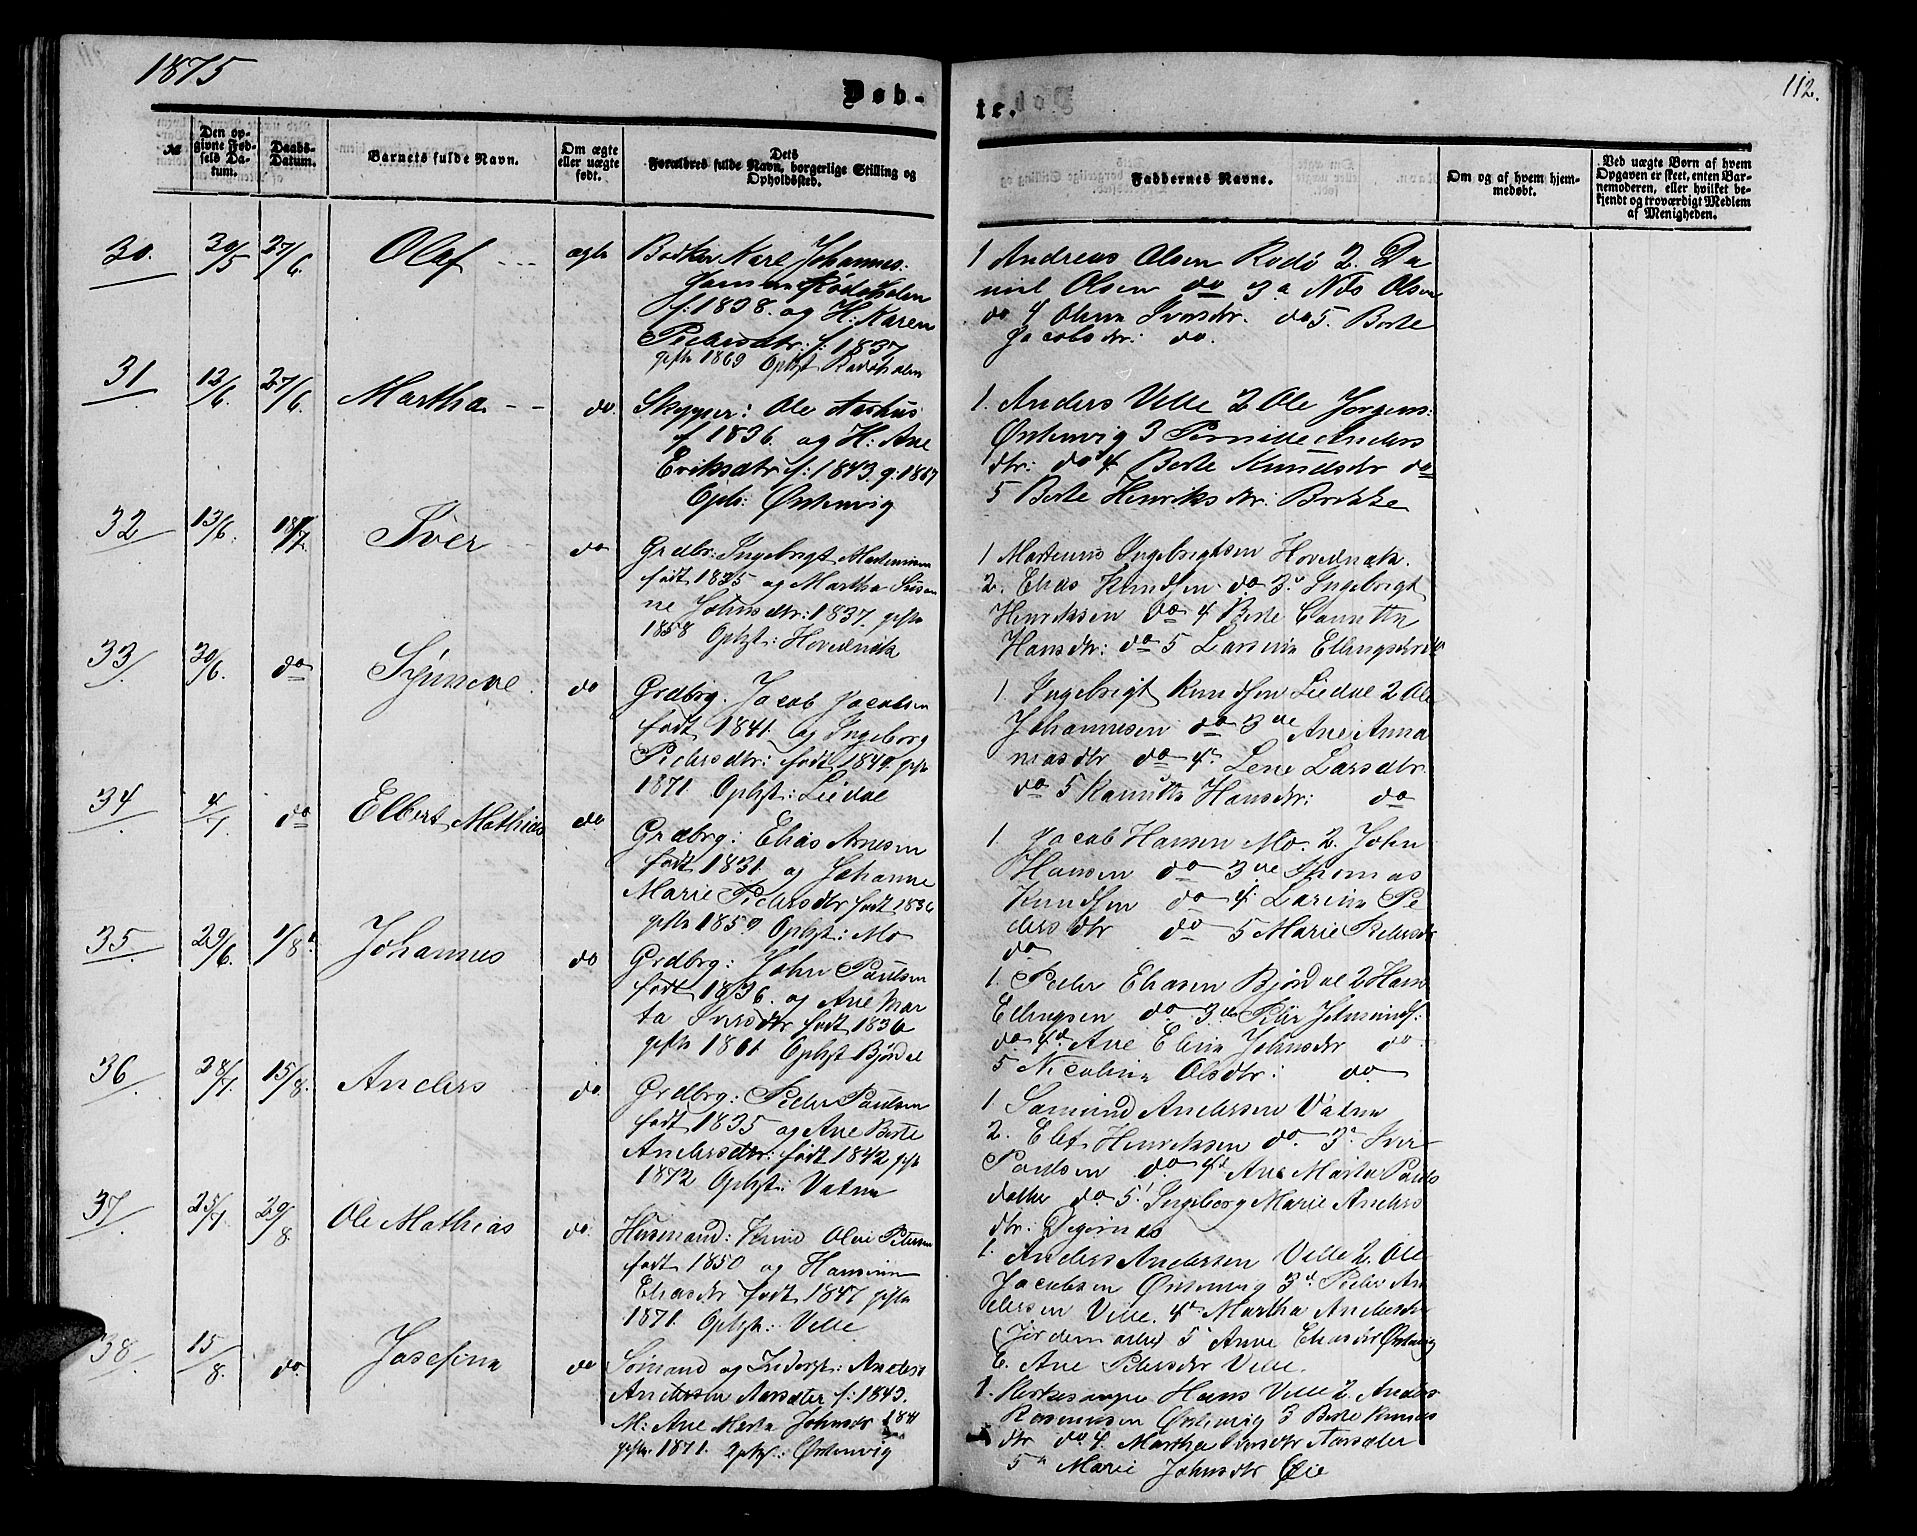 1875
112.
Døb-
te.
№
Den op-
givne Fød-
sels Da-
tum.
Daabs-
Datum.
Barnets fulde Navn.
Om ægte
eller uægte
født.
Dets
Forældres fulde Navn, borgerlige Stilling og
Opholdssted.
Faddernes Navne.
Om og af hvem hjem-
medøbt.
Ved uægte Børn af hvem
Opgaven er skeet, enten Bar-
nemoderen, eller hvilket be-
kjendt og troværdigt Medlem
af Menigheden.
30. 30/5 27/6. Olaf ægte
Bødker Karl Johannes:
Jansen Rødøholen
f: 1838. og H: Karen
Pedersdtr: f: 1837
gift 1869 Ophst Rødøholen
1 Andreas Olsen Rødø 2. Da
niel Olsen do 3 Nils Olsen
do 4 Olina Iversdtr. do 5. Berte
Jacobsdtr: do.
31 12/6. 27/6. Martha do.
Skypper: Ole Aashus
f 1836. og H: Ane
Eriksdtr f: 1843 g. 1867
Oph: Østenvig
1. Anders Velle 2 Ole Jørgens:
Østenvig 3 Pernille Anders
dtr: do 4 Berte Knudsdtr do
5 Berte Henriksdtr: Brekke
32 13/6. 18/7. Iver do
Grdbr: Ingebrigt Martinusen
født 1835 og Martha Susan
ne Johnsdtr: 1837. gift
1858 Ophst: Hovednak
1 Martinus Ingebrigtsen Hovednak.
2. Elias Knudsen do 3. Ingebrigt
Henriksen do 4 Berte
Hansdtr: do 5 Larsine Ellingsdtr do
33 30/6. do Synneve do
Grdbrg. Jacob Jacobsen
født 1841 og Ingeborg
Pedersdtr: født 1849 gift
1871 Ophst: Liedal
1. Ingebrigt Knudsen Liedal 2 Ole
Johannesen do 3 Ane Anna
niasdtr do 4 Lene Larsdtr
do 5 Hansdtr: do
34 4/7. do Elbert Mathias do
Grdbrg: Elias Arnesen
født 1831 og Johanne
Marie Pedersdtr født 1836
gift 1859 Ophst: Mo
1. Jacob Hansen Mo. 2. John
Hansen do 3 Thomas
Knudsen do 4 Larine Pe
dersdtr do 5 Marie Pedersdtr
do
35 29/6. 1/8. Johannes do
Grdbrg: John Paulsen
født 1836. og Ane Mar
ta Iversdtr født 1836
gift 1861 Ophst Bjørdal
1. Peder Eliasen Bjørdal 2 Hans
Ellingsen do 3 Peder
do 4 Ane Elina Johnsdtr do
5 Nicoline Olsdtr: do
36 28/7. 15/8. Anders do
Grdbrg: Peder Paulsen
født 1835 og Ane Berte
Andersdtr: født 1842 gift
1872 Ophst: Vatne
1 Samund Andersen Vatne
2. Elef Henriksen do. 3 Iver
Paulsen do 4 Ane Marta Pauls
datter do 5. Ingeborg Marie Anders
dtr: Degernæs
37. 25/7 29/8. Ole Mathias do.
Husmand: Knud Olai Petersen
født 1850 og Hansine
Eliasdtr født 1847 gift
1871. Ophst: Velle
1. Anders Andersen Velle 2. Ole
Jacobsen Østenvig 3 Peder An
dersen Velle. 4 Martha Andersdtr
(Jordemoder 5 Anne Eliasdtr Østenvig
6. Ane Pedersdtr Velle.
38. 15/8. do. Josefine do
Sømand og Inderst: Anders
Andersen Aarsæter f: 1843.
M: Ane Marta Johnsdtr 1841
gift. 1871. Ophst.: Østenvig
1. Kirkesanger Hans Velle 2. Anders
Rasmussen Østenvig 3 Berte Knuds
dtr do. 4. Martha Iversdtr Aarsæter
5 Marie Johnsdtr Øie